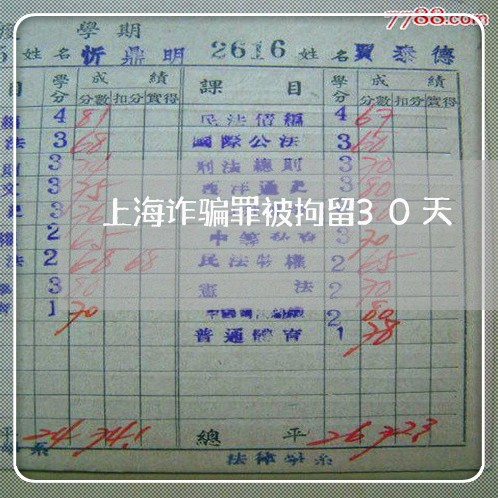 7788.com
學期
姓名 忻鼎明 2616 姓名 賈泰德
目 學分 成績 課目 學分 成績
分數 扣分 實得 分數 扣分 實得
4 81 民法債編 4 67
法 3 68 國際公法 3 60
3 刑法總則 3 70
3 75 西洋通史 3 80
上海诈骗罪被拘留30天
2 65 3 70
法 2 68 68 民法物權 2 65
3 80 憲法 2 70
1 70 2 80
普通體育 1 78
平 24 74.1 總平 26 72.3
系 法律學系